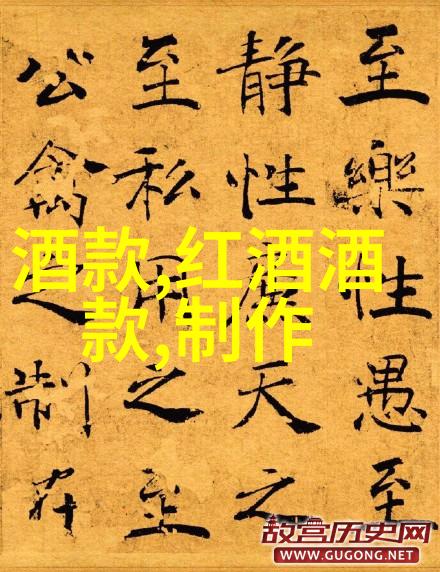 至樂性愚至
静性廉天之
至私用之至
公禽之制在
酒款,红酒酒
款,制作
故宫历史网
WWW.GUGONG.NET